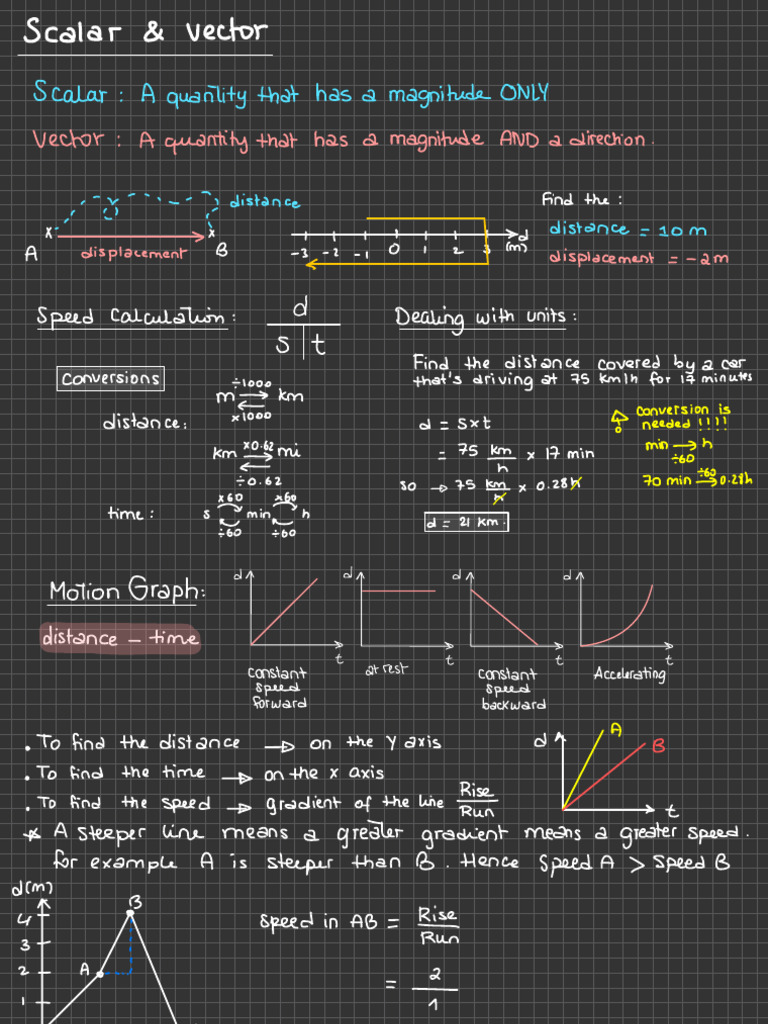 Scalar & vector
Scalar : A quantity that has a magnitude ONLY
Vector : A quantity that has a magnitude AND a direction.
distance
A x displacement x B
-3 -2 -1 0 1 2 3 d (m)
Find the :
distance = 10 m
displacement = -2m
Speed Calculation :
d
s t
Conversions
distance:
m ÷1000 ×1000 km
km ×0.62 ÷0.62 mi
time :
s ×60 ÷60 min ×60 ÷60 h
Dealing with units :
Find the distance covered by a car
that's driving at 75 km/h for 17 minutes
d = s×t
= 75 km/h × 17 min
so → 75 km/h × 0.28h
d = 21 km.
conversion is
needed !!!!
min → h
÷60
70 min ÷60 → 0.28h
Motion Graph:
distance - time
d t
constant
speed
forward
d t
at rest
d t
constant
speed
backward
d t
Accelerating
. To find the distance → on the Y axis
. To find the time → on the x axis
. To find the speed → gradient of the line Rise/Run
d A B t
* A steeper line means a greater gradient means a greater speed.
for example A is steeper than B. Hence Speed A > Speed B
d(m)
4
3
2
1
A
B
speed in AB = Rise/Run
= 2/1